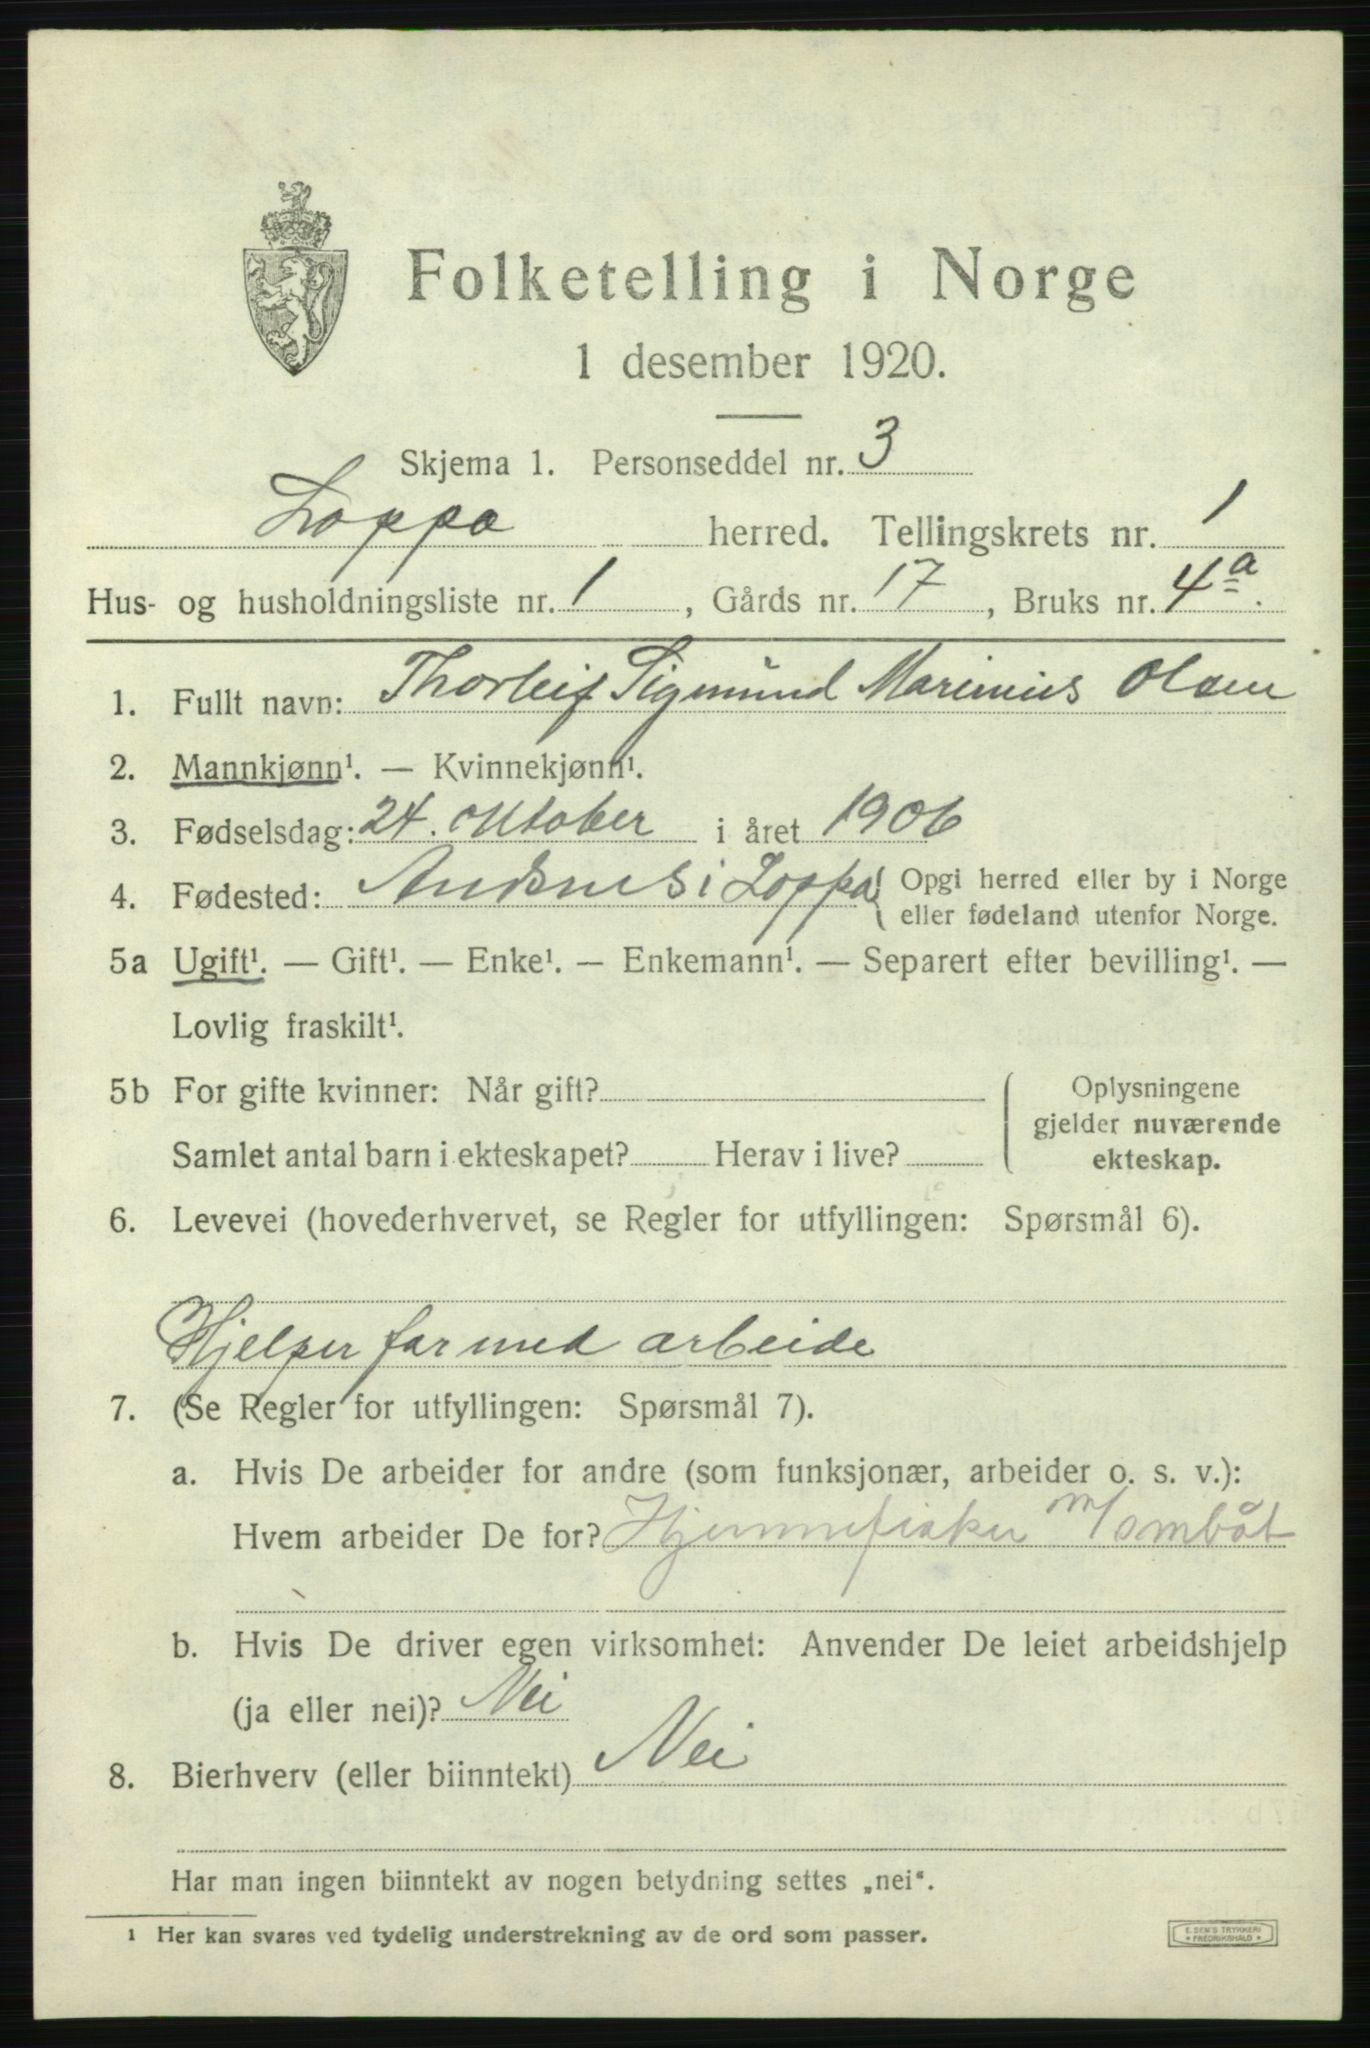 Folketelling i Norge
1 desember 1920.
Skjema 1. Personseddel nr. 3
Loppa herred. Tellingskrets nr. 1
Hus- og husholdningsliste nr. 1, Gårds nr. 17, Bruks nr. 4a.
1. Fullt navn: Thorleif Sigmund Marinius Olsen
2. Mannkjønn¹. — Kvinnekjønn¹.
3. Fødselsdag: 24. oktober i året 1906
4. Fødested: Andsnes i Loppa { Opgi herred eller by i Norge
eller fødeland utenfor Norge.
5a Ugift¹. — Gift¹. — Enke¹. — Enkemann¹. — Separert efter bevilling¹. —
Lovlig fraskilt¹.
5b For gifte kvinner: Når gift? 
Samlet antal barn i ekteskapet? Herav i live?
Oplysningene
gjelder nuværende
ekteskap.
6. Levevei (hovederhvervet, se Regler for utfyllingen: Spørsmål 6).
Hjelper far med arbeide
7. (Se Regler for utfyllingen: Spørsmål 7).
a. Hvis De arbeider for andre (som funksjonær, arbeider o. s. v.):
Hvem arbeider De for? Hjemmefisker m/ småbåt
b. Hvis De driver egen virksomhet: Anvender De leiet arbeidshjelp
(ja eller nei)? Nei
8. Bierhverv (eller biinntekt) Nei
Har man ingen biinntekt av nogen betydning settes „nei“.
¹ Her kan svares ved tydelig understrekning av de ord som passer.
E. SEM'S TRYKKERI
* FREDRIKSHALD *